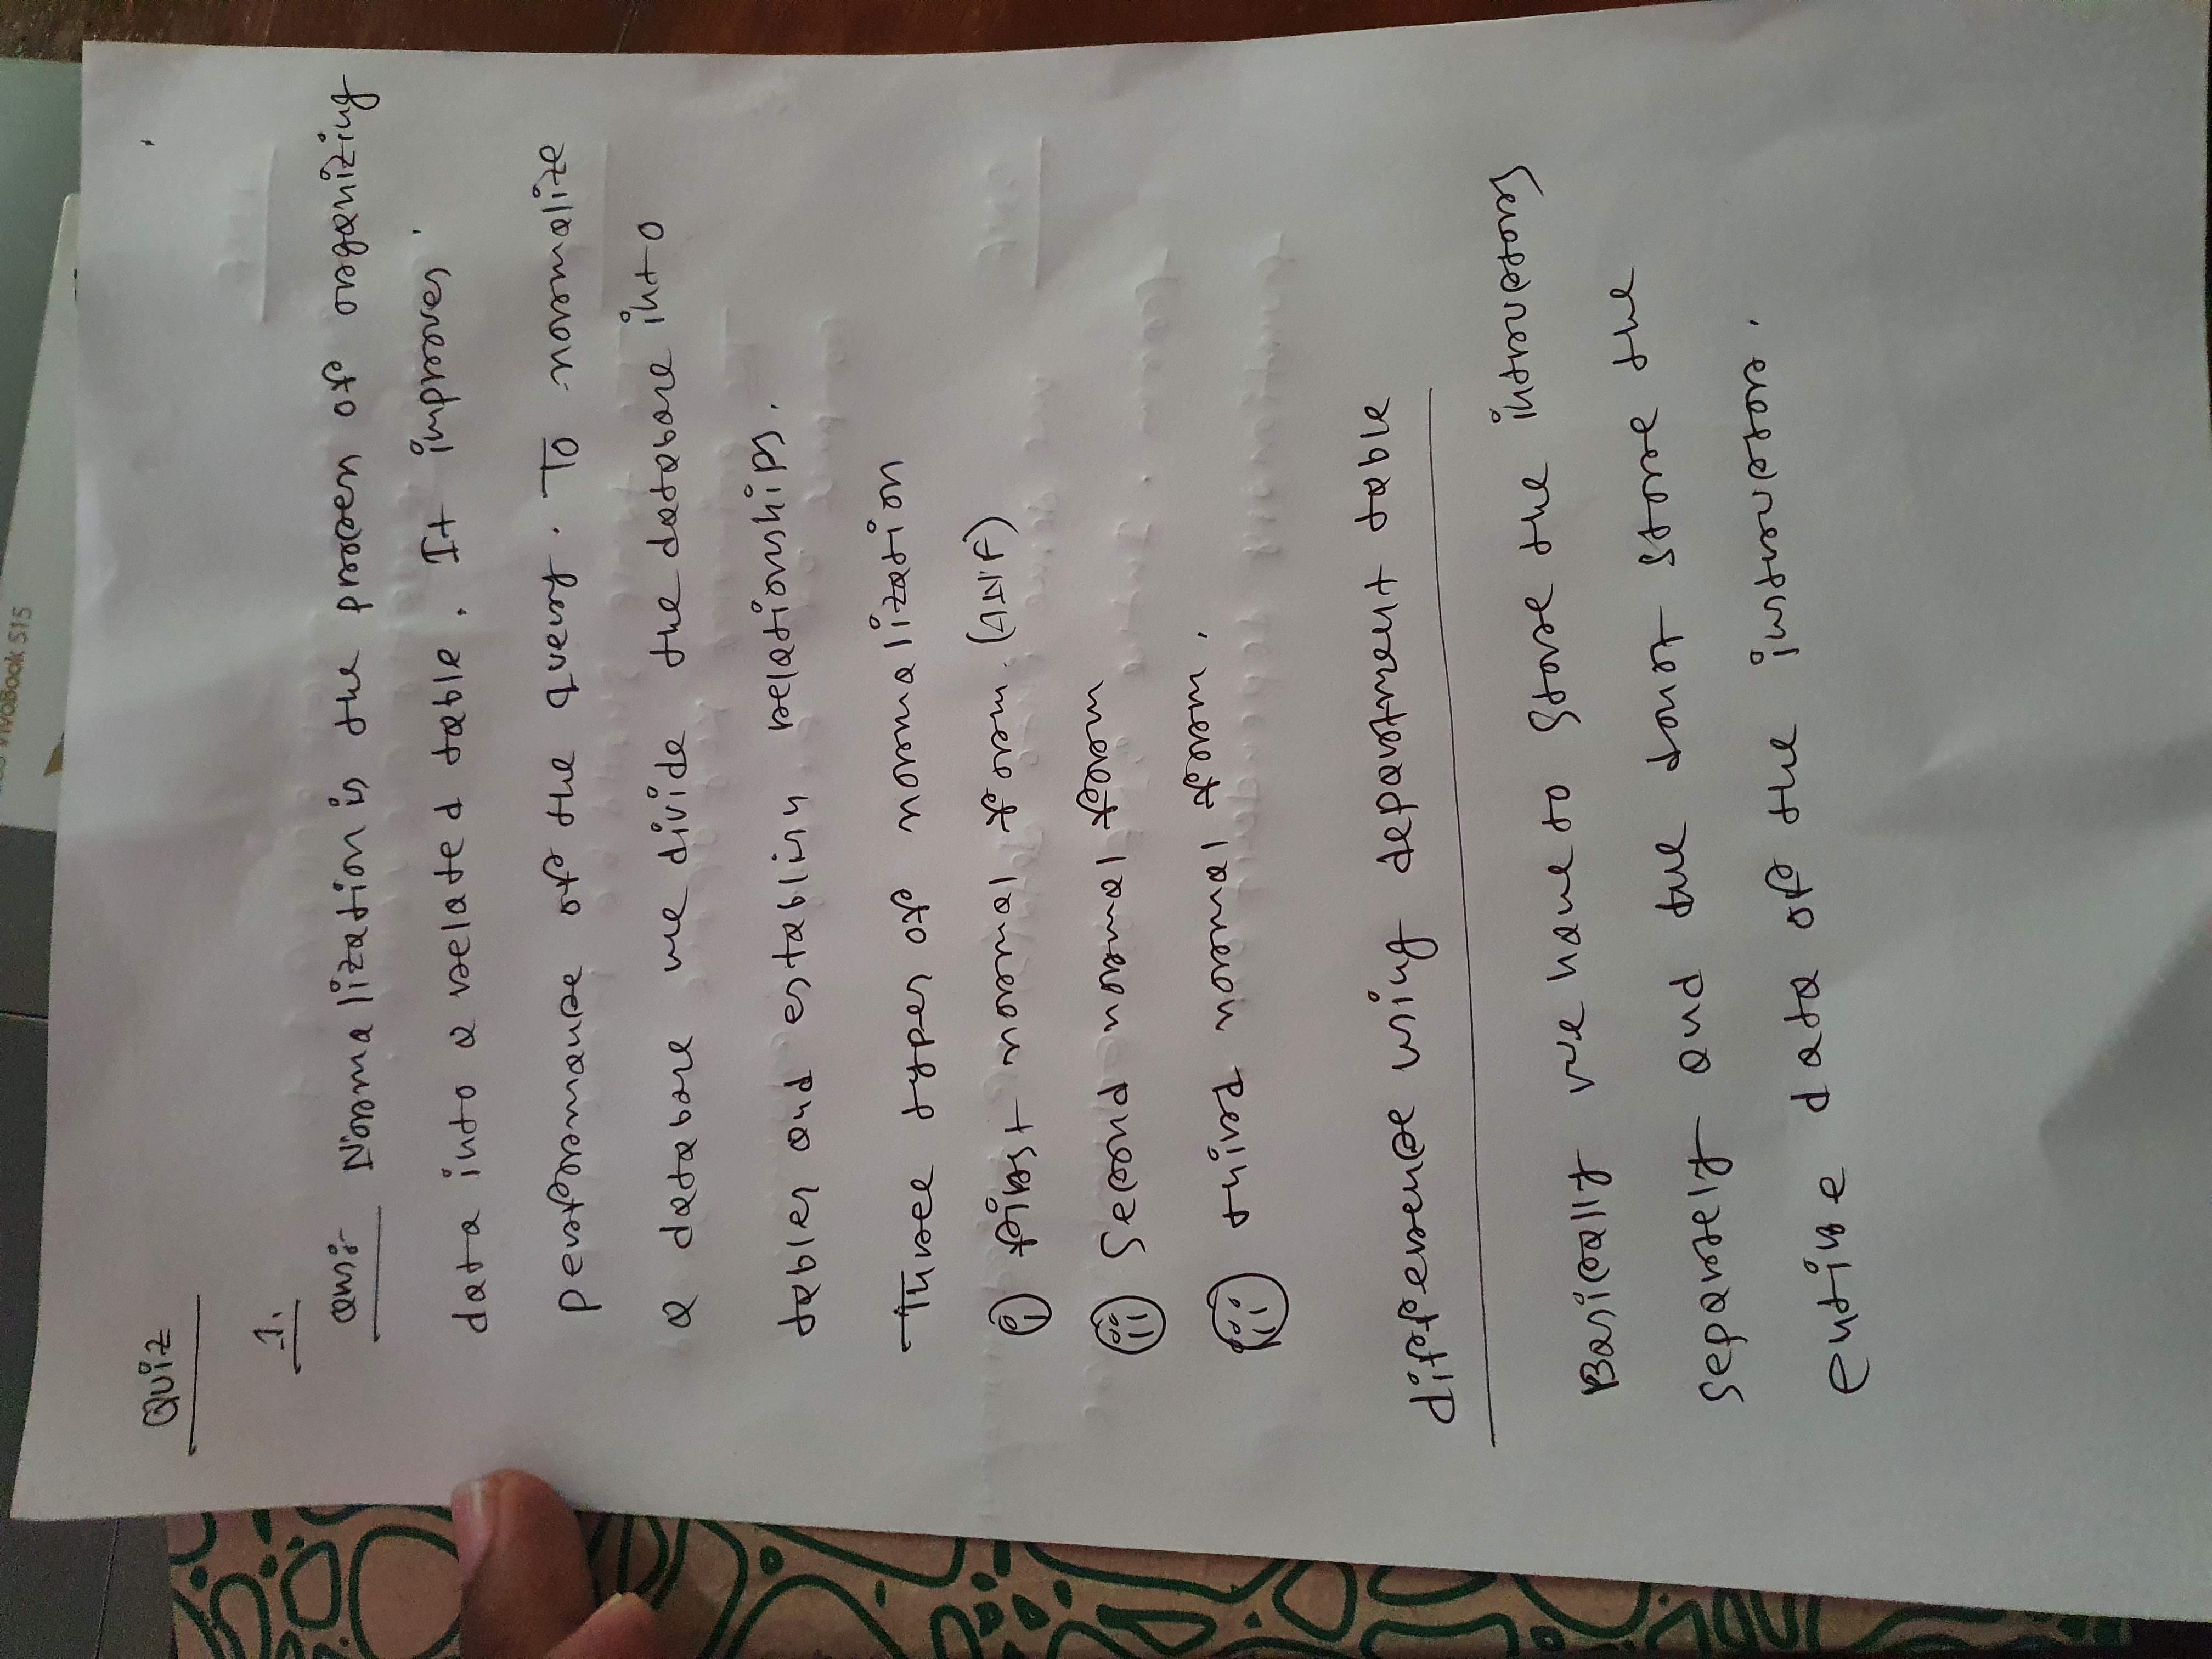 VivoBook S15
Quiz
1.
Ans:- Normalization is the process of organizing
data into a related table. It improves
performance of the query. To normalize
a database we divide the database into
tables and establish relationships.
Three types of normalization
(i) first normal form. (1NF)
(ii) Second normal form
(iii) third normal form.
difference using department table
Basically we have to store the intructors
separtely and the donot store the
entire data of the instructor.